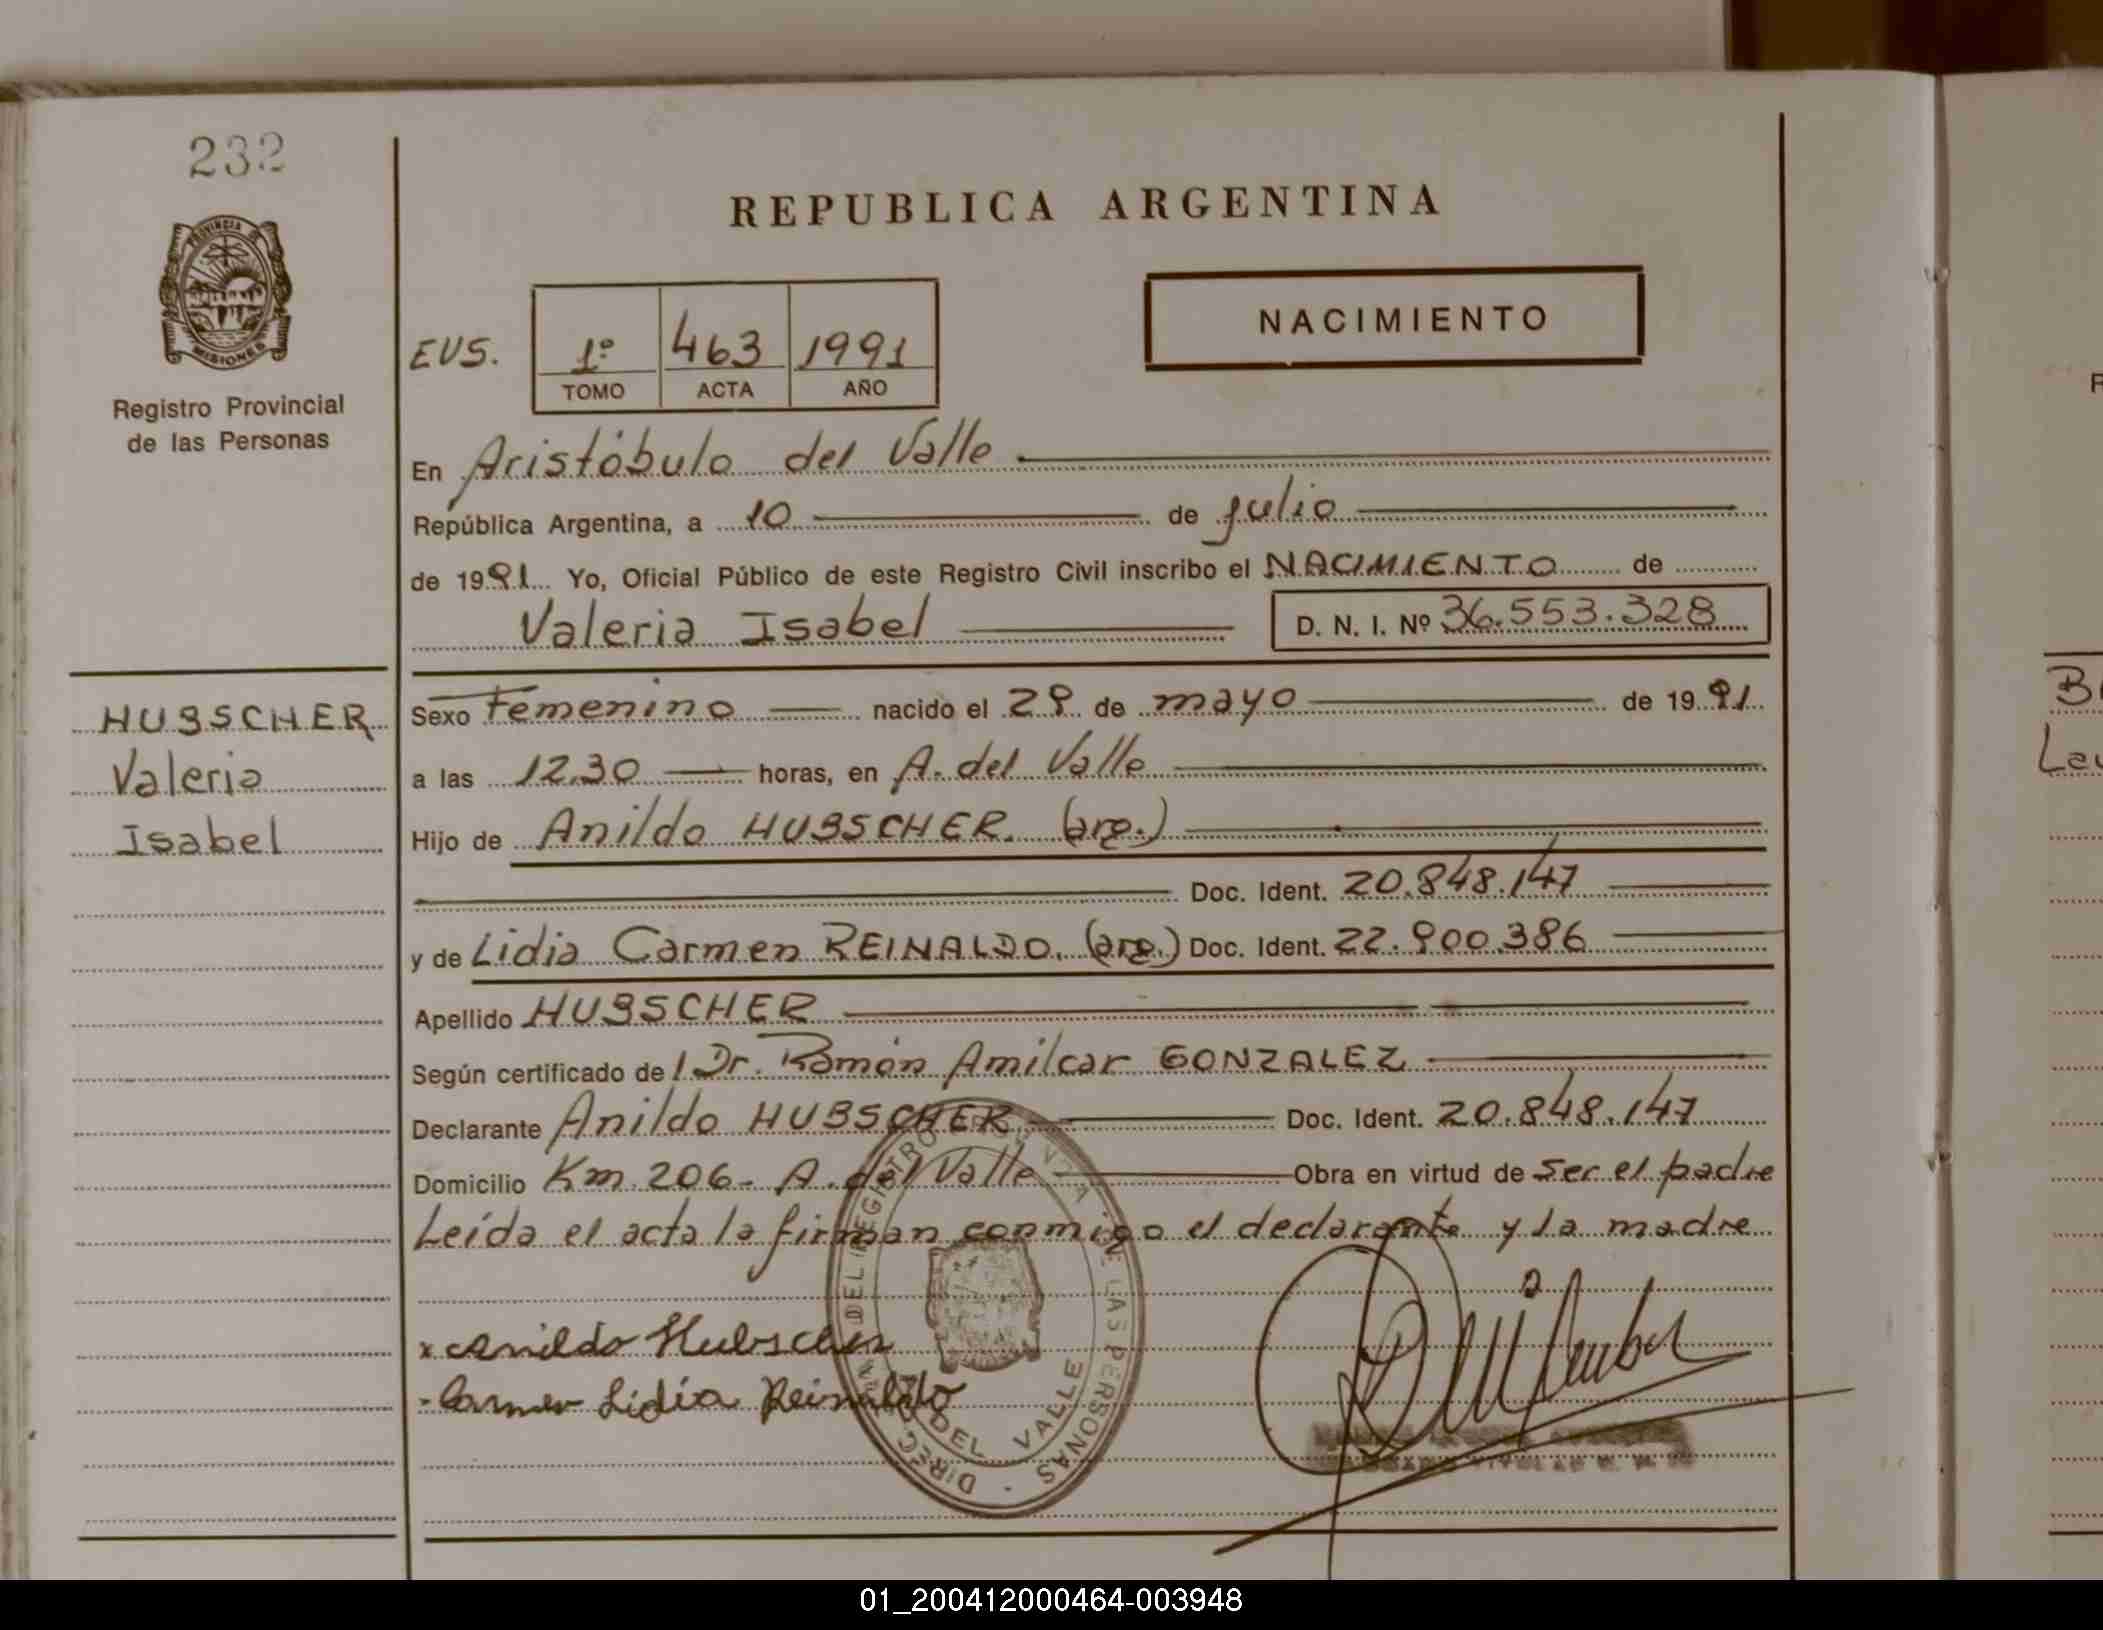 232
PROVINCIA DE
MISIONES
Registro Provincial
de las Personas
REPUBLICA ARGENTINA
NACIMIENTO
EVS. 1º 463 1991
TOMO ACTA AÑO
En Aristóbulo del Valle
República Argentina, a 10 de julio
de 1991 Yo, Oficial Público de este Registro Civil inscribo el NACIMIENTO de
Valeria Isabel D. N. I. Nº 36.553.328
HUBSCHER
Valeria
Isabel
Sexo Femenino nacido el 29 de mayo de 1991
a las 12.30 horas, en A. del Valle
Hijo de Anildo HUBSCHER. (arg.)
Doc. Ident. 20.848.147
y de Lidia Carmen REINALDO. (arg.) Doc. Ident. 22.900.386
Apellido HUBSCHER
Según certificado de l Dr. Ramón Amilcar GONZALEZ
Declarante Anildo HUBSCHER Doc. Ident. 20.848.147
Domicilio Km. 206 - A. del Valle Obra en virtud de ser el padre
Leída el acta la firman conmigo el declarante y la madre
x Anildo Hubscher
- Carmen Lidia Reinaldo
DEL REGISTRO DE LAS PERSONAS
DEL VALLE
01_200412000464-003948